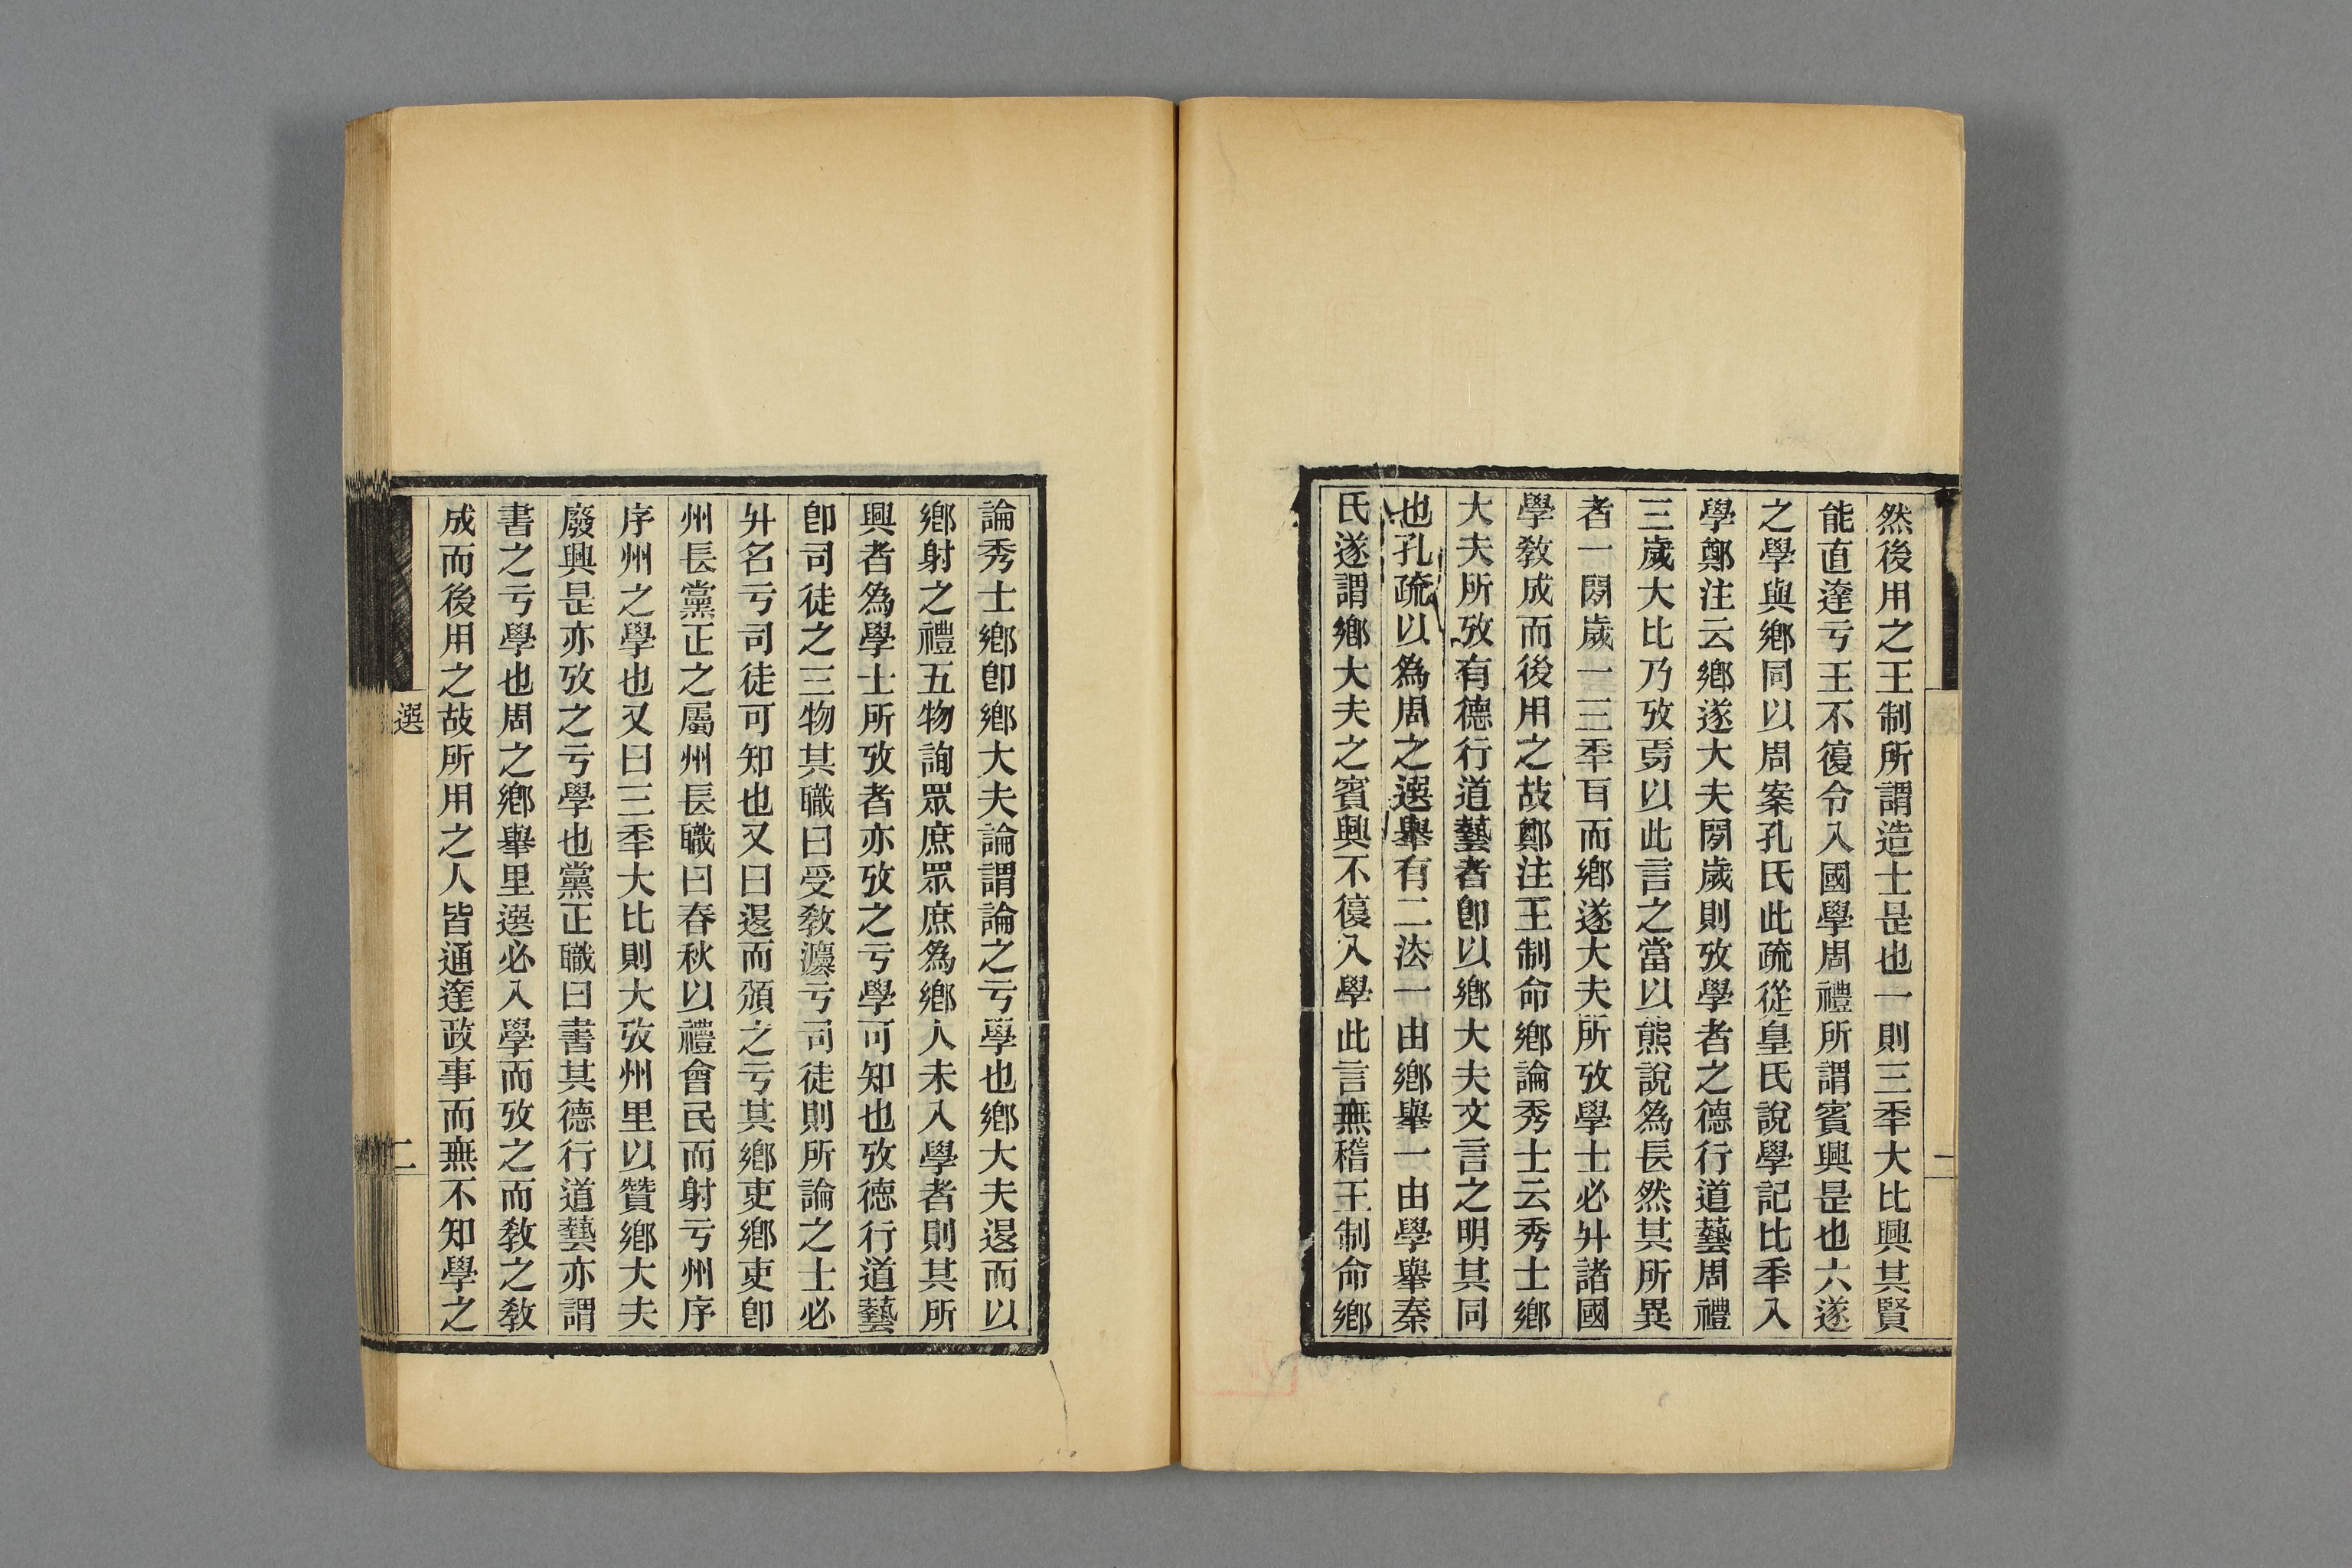 然後用之王制所謂造士是也一則三秊大比興其賢
能直達亏王不復令入國學周禮所謂賓興是也六遂
之學與鄉同以周案孔氏此疏從皇氏說學記比秊入
學鄭注云鄉遂大夫閒歲則攷學者之德行道藝周禮
三歲大比乃攷焉以此言之當以熊說爲長然其所異
者一閒歲一三秊耳而鄉遂大夫所攷學士必升諸國
學敎成而後用之故鄭注王制命鄉論秀士云秀士鄉
大夫所攷有德行道藝者卽以鄉大夫文言之明其同
也孔疏以爲周之選舉有二法一由鄉舉一由學舉秦
氏遂謂鄉大夫之賓興不復入學此言無稽王制命鄉
二
論秀士鄉卽鄉大夫論謂論之亏學也鄉大夫退而以
鄉射之禮五物詢眾庶眾庶爲鄉人未入學者則其所
興者爲學士所攷者亦攷之亏學可知也攷德行道藝
卽司徒之三物其職曰受敎灋亏司徒則所論之士必
升名亏司徒可知也又曰退而頒之亏其鄉吏鄉吏卽
州長黨正之屬州長職曰春秋以禮會民而射亏州序
序州之學也又曰三秊大比則大攷州里以贊鄉大夫
廢興是亦攷之亏學也黨正職曰書其德行道藝亦謂
書之亏學也周之鄉舉里選必入學而攷之而敎之敎
成而後用之故所用之人皆通達政事而無不知學之
選
二